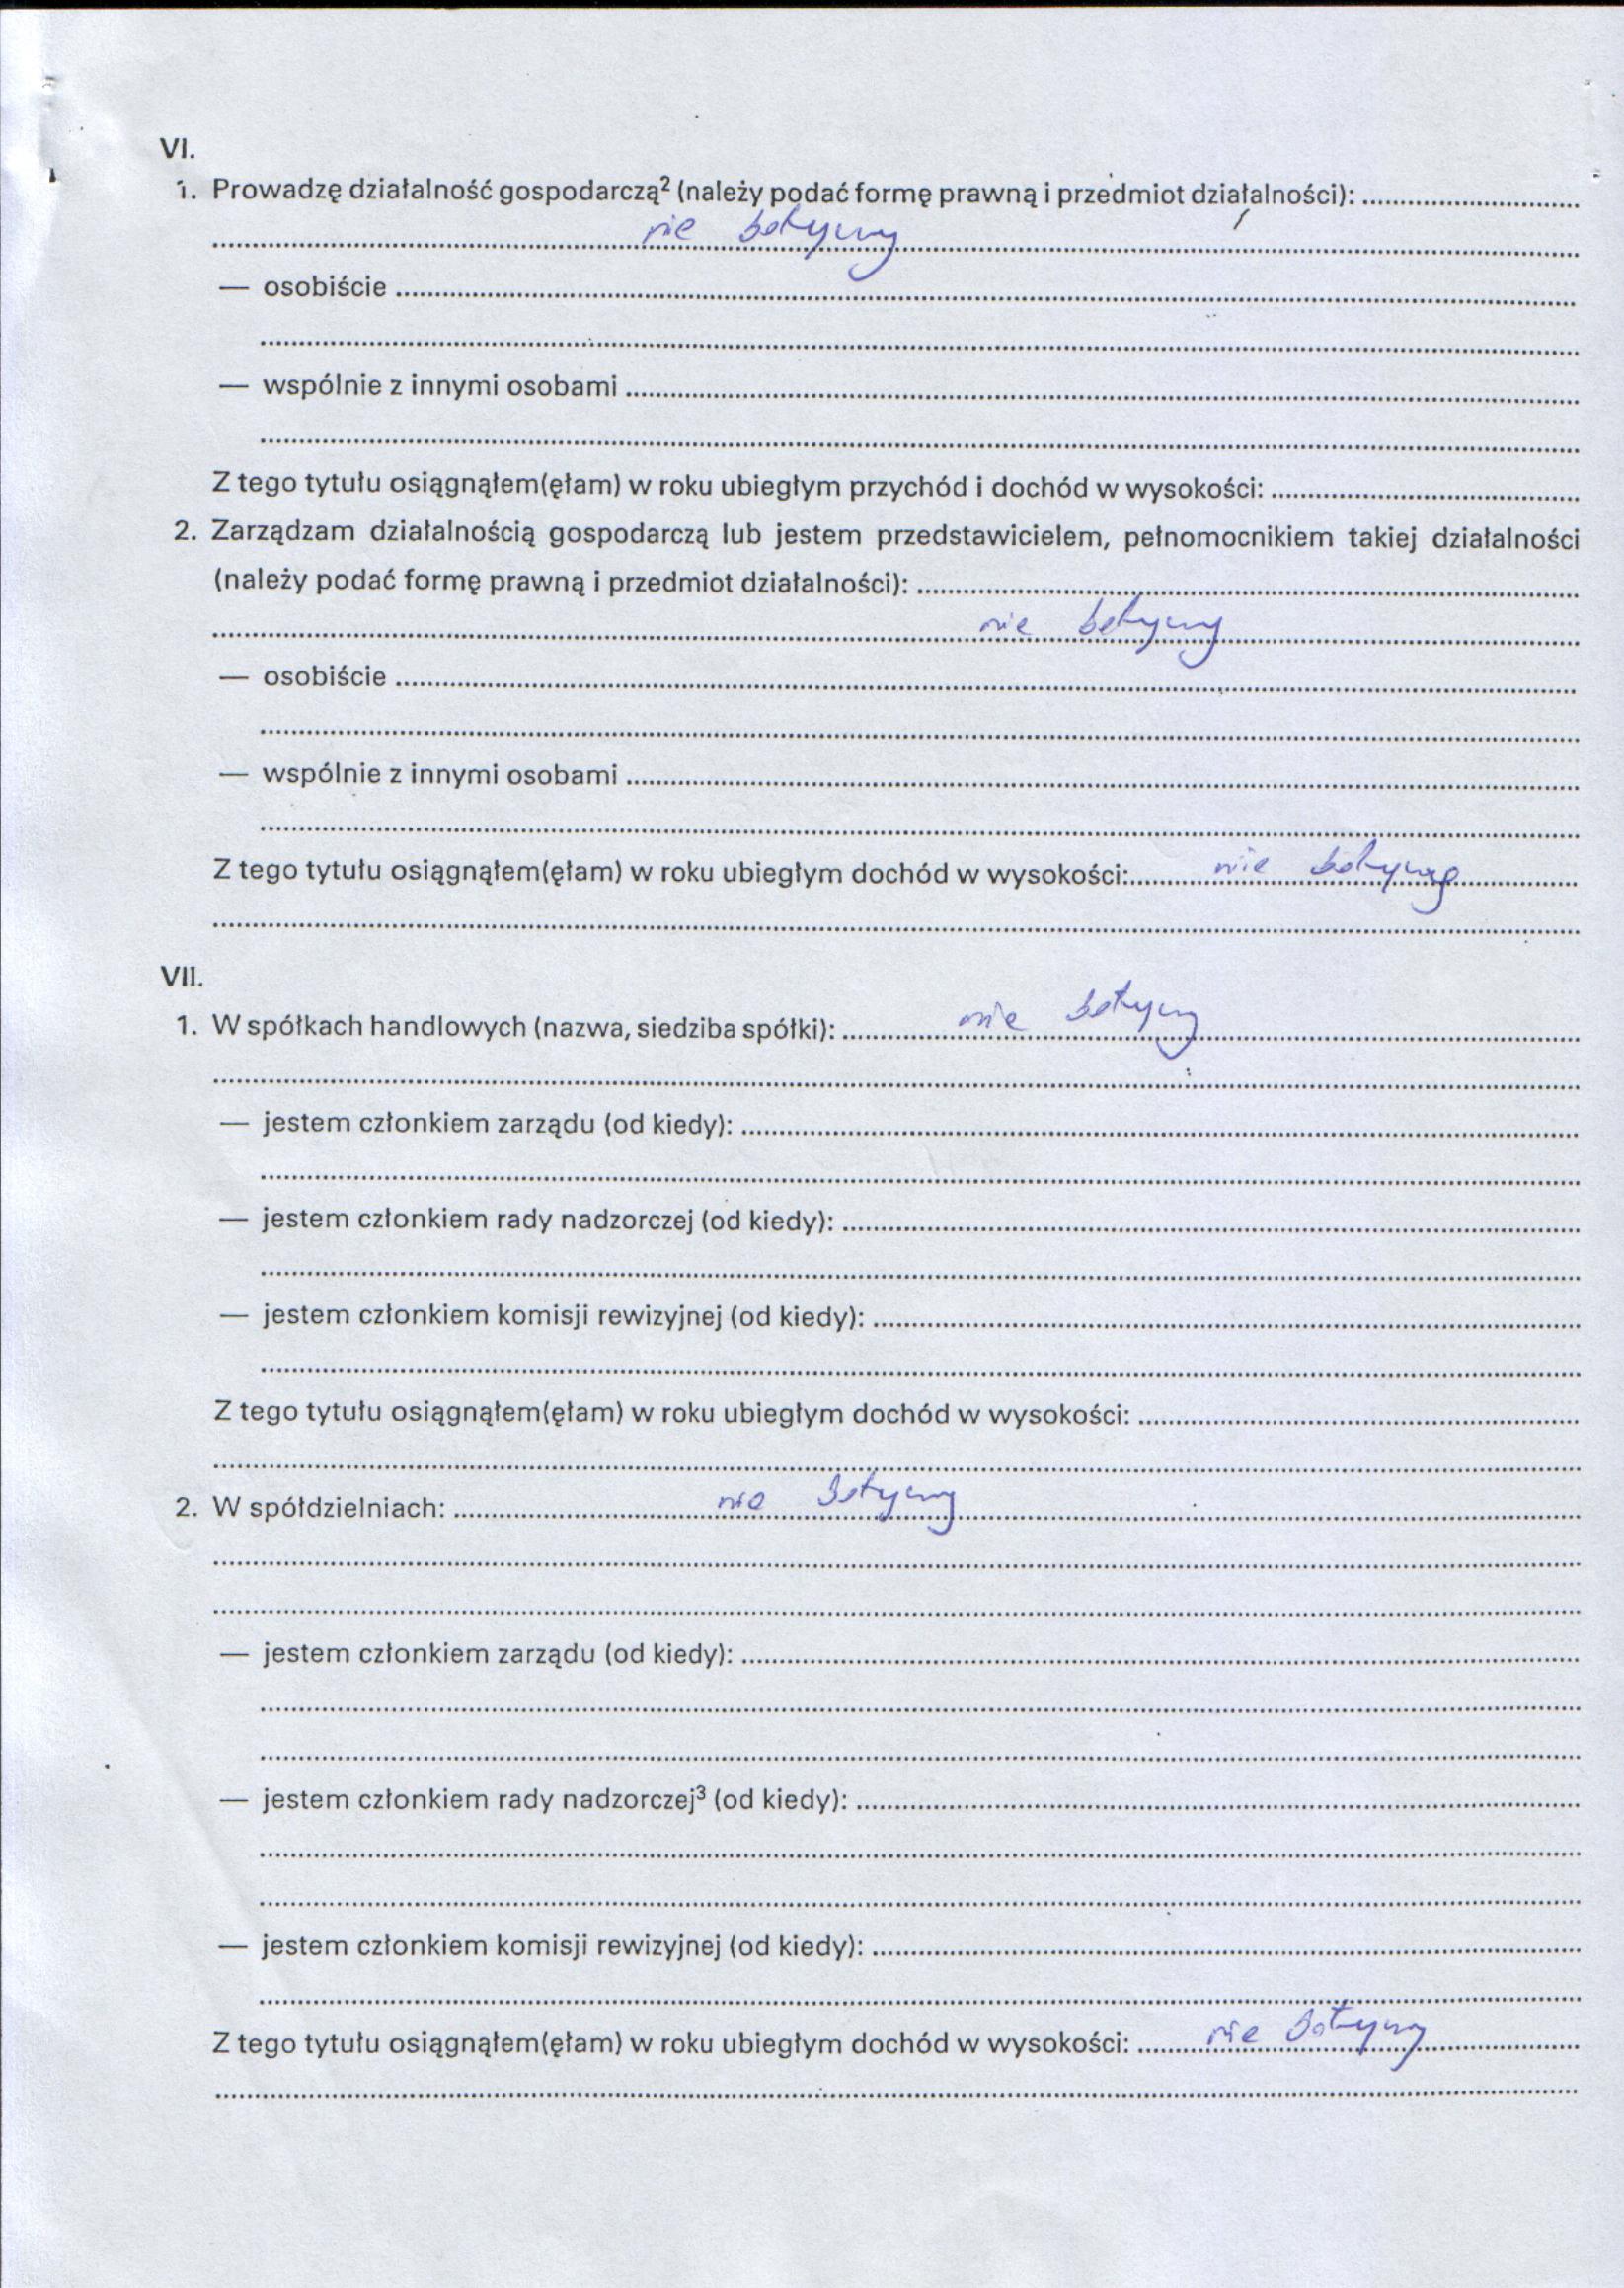 VI.
1. Prowadzę działalność gospodarczą² (należy podać formę prawną i przedmiot działalności): ....................
nie dotyczy
— osobiście ....................
— wspólnie z innymi osobami ....................
Z tego tytułu osiągnąłem(ęłam) w roku ubiegłym przychód i dochód w wysokości: ....................
2. Zarządzam działalnością gospodarczą lub jestem przedstawicielem, pełnomocnikiem takiej działalności
(należy podać formę prawną i przedmiot działalności): ....................
nie dotyczy
— osobiście ....................
— wspólnie z innymi osobami ....................
Z tego tytułu osiągnąłem(ęłam) w roku ubiegłym dochód w wysokości: nie dotyczy
VII.
1. W spółkach handlowych (nazwa, siedziba spółki): nie dotyczy
— jestem członkiem zarządu (od kiedy): ....................
— jestem członkiem rady nadzorczej (od kiedy): ....................
— jestem członkiem komisji rewizyjnej (od kiedy): ....................
Z tego tytułu osiągnąłem(ęłam) w roku ubiegłym dochód w wysokości: ....................
2. W spółdzielniach: nie dotyczy
— jestem członkiem zarządu (od kiedy): ....................
— jestem członkiem rady nadzorczej³ (od kiedy): ....................
— jestem członkiem komisji rewizyjnej (od kiedy): ....................
Z tego tytułu osiągnąłem(ęłam) w roku ubiegłym dochód w wysokości: nie dotyczy